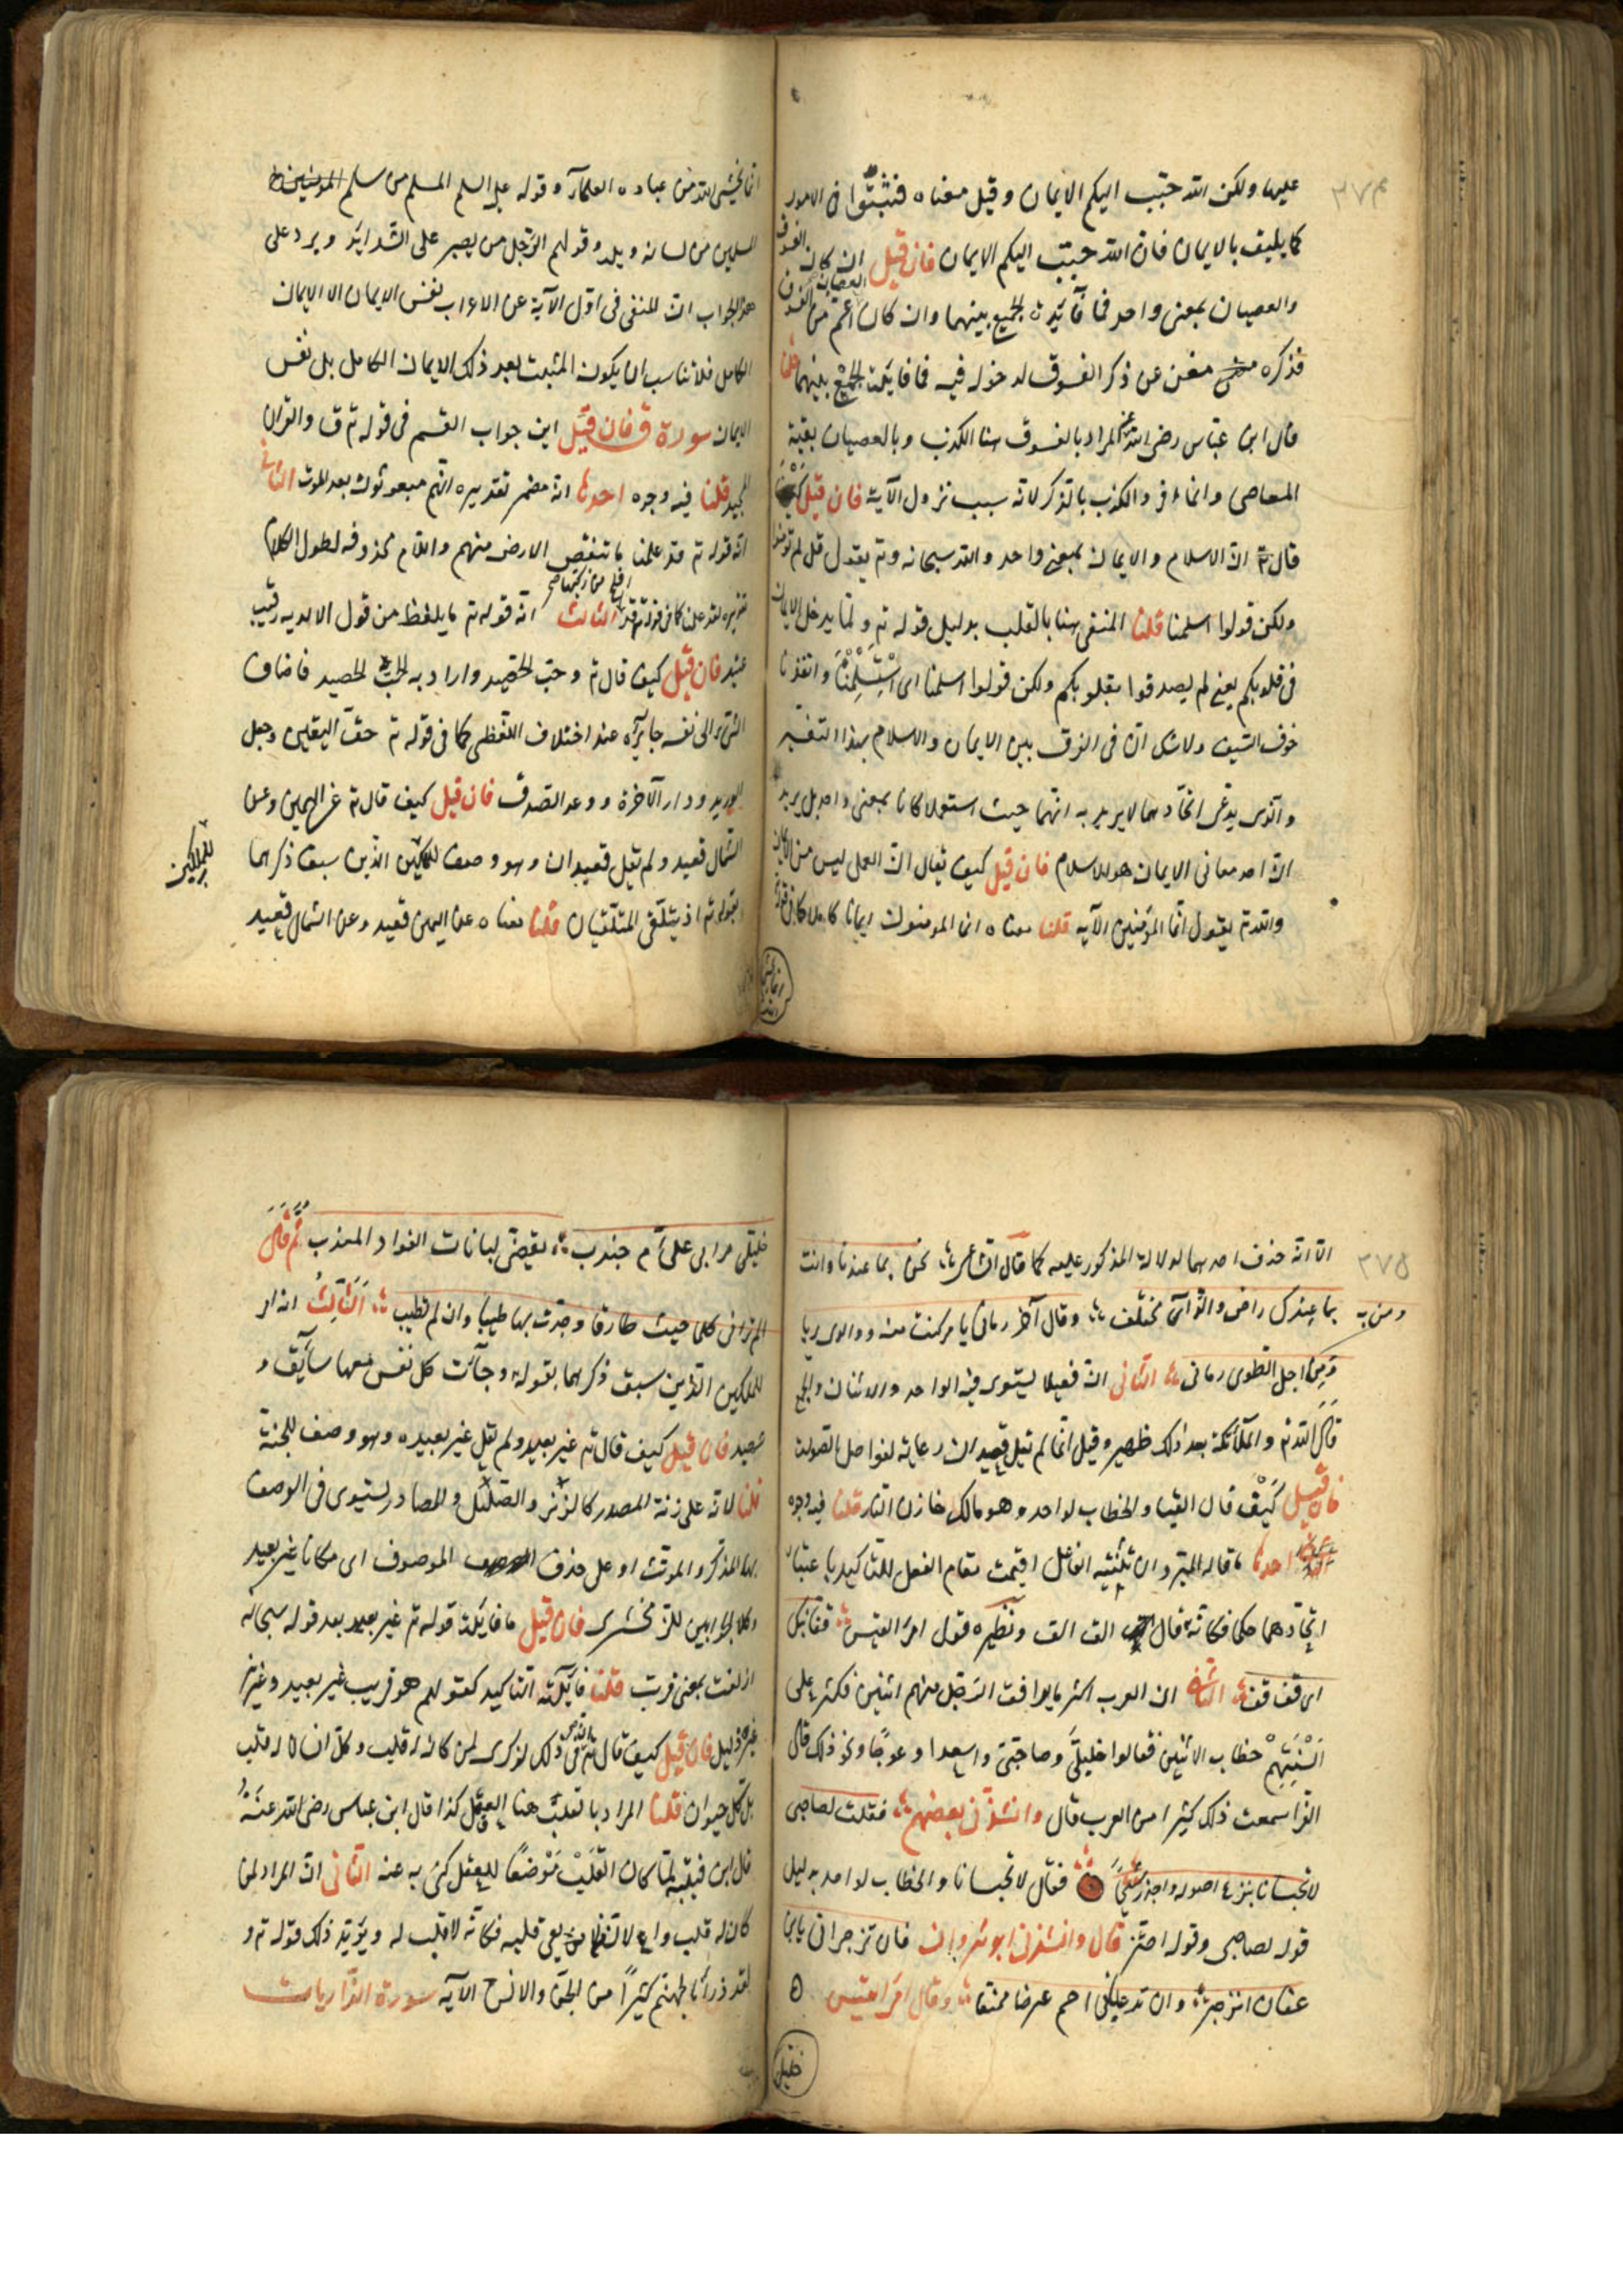 ٣٧٤
عليها ولكن الله حبّب اليكم الايمان وقيل معناه فتثبّتوا فى الامور
كما يليق بالايمان فان الله حبّب اليكم الايمان فان قيل ان كان الفسوق
والعصيان بمعنى واحد فما فآئدة الجمع بينهما وان كان العصيان اعم من الفسوق
فذكره مغن عن ذكر الفسوق لدخوله فيه فما فايدة الجمع بينهما قلنا
قال ابن عباس رضى الله عنه المراد بالفسوق هنا الكذب وبالعصيان بقية
المعاصى وانما افرد الكذب بالذكر لانه سبب نزول الآية فان قيل كيف
قال ان الاسلام والايمان بمعنى واحد والله سبحانه وتع يقول قل لم تؤمنوا
ولكن قولوا اسلمنا قلنا المنفى هنا بالقلب بدليل قوله تع ولما يدخل الايمان
فى قلوبكم يعنى لم يصدقوا بقلوبكم ولكن قولوا اسلمنا اى استسلمنا وانقدنا
خوف السيف ولاشك ان فى الفرق بين الايمان والاسلام بهذا التفسير
والذى يدعى اتحادهما لا يريد به انهما حيث استعملا كانا بمعنى واحد بل يريد
ان احد معانى الايمان هو الاسلام فان قيل كيف يقال ان العمل ليس من الايمان
والله تع يقول انما المؤمنين الآيه قلنا معناه انما المومنون ايمانا كاملا كما فى قوله
انما يخشى الله من عباده العلمآء وقوله عليه السلم المسلم من سلم
المسلمين من لسانه ويده وقولهم الرجل من يصبر على الشدايد ويرد على
هذا الجواب ان المنفى فى اول الآية عن الاعراب نفس الايمان لا الايمان
الكامل فلا تناسب ان يكون المثبت بعد ذلك الايمان الكامل بل نفس
الايمان سورة ق فان قيل اين جواب القسم فى قوله تع ق والقران
المجيد قلنا فيه وجوه احدها انه مضمر تقديره انهم مبعوثون بعد الموت الثانى
انه قوله تع قد علمنا ما تنقص الارض منهم واللام محذوفه لطول الكلام
تقديره لقد علمنا كما فى قوله تع قد افلح من زكيها الثالث انه قوله تع ما يلفظ من قول الا لديه رقيب
عتيد فان قيل كيف قال تع وحب الحصيد واراد به الحب الحصيد فاضاف
الشئ الى نفسه جايز عند اختلاف اللفظى كما فى قوله تع حق اليقين وحبل
الوريد ودار الآخرة ووعد الصدق فان قيل كيف قال تع عن اليمين وعن
الشمال قعيد ولم تقل قعيدان وهو وصف للملكين الذين سبق ذكرهما
للملكين
بقوله تع اذ يتلقى المتلقيان قلنا معناه عن اليمين قعيد وعن الشمال قعيد
٣٧٥
الا انه حذف احدهما لدلالة المذكور عليه كما قال الشاعر نحن بما عندنا وانت
بما عندك راض والرأى مختلف وقال آخر رمانى بامر كنت منه ووالدى بريا
ومن به
ومن اجل الطوى رمانى الثانى ان فعيلا يستوى فيه الواحد والاثنان والجمع
قال الله تع والملآئكة بعد ذلك ظهير وقيل انما لم تقل قعيدان رعاية لفواصل السورة
فان قيل كيف قال القيا والخطاب لواحد وهو مالك خازن النار قلنا فيه وجوه
احدها ما قاله المبرد ان تثنيه الفاعل اقيمت مقام الفعل للتاكيد باعتبار
اتحادهما حكما فكانه قال الق الق ونظيره قول امرء القيس قفا نبك
اى قف قف الثانى ان العرب اكثر ما يوافق الرجل منهم اثنين فكثر على
السنتهم خطاب الاثنين فقالوا خليلى وصاحبى واسعدا وعوجا ونحو ذلك قال
الفرا سمعت ذلك كثيرا من العرب قال وانشدنى بعضهم فقلت لصاحبى
لا تحبسانا بنزع اصوله واجدز شيحا فقال لا تحبسانا والخطاب لواحد بدليل
قوله لصاحبى وقوله اجتز قال وانشدنى ابو ثروان فان تزجرانى يا ابن
عفان انزجر وان تدعانى احم عرضا ممنعا وقال امرا لقيس
خليلى
خليلى مرا بى على ام جندب نقضى لبانات الفواد المعذب ثم قال
الم ترانى كلما جئت طارقا وجدت بها طيبا وان لم تطيب الثالث انه امر
للملكين الذين سبق ذكرهما بقوله وجآءت كل نفس معها سآئق و
شهيد فان قيل كيف قال تع غير بعيد ولم يقل غير بعيده وهو وصف للجنة
قلنا لانه على زنة المصدر كالزئر والصليل والمصادر يستوى فى الوصف
بها المذكر والموئث او على حذف الموصوف اى مكانا غير بعيد
وكلا الجوابين للزمخشرى فان قيل ما فايدة قوله تع غير بعيد بعد قوله سبحانه
ازلفت بمعنى قربت قلنا فآئدته التاكيد كقولهم هو قريب غير بعيد وعزيز
غير ذليل فان قيل كيف قال تع ان فى ذلك لذكرى لمن كان له قلب وكل انسان له قلب
بل كل حيوان قلنا المراد بالقلب هنا العقل كذا قال ابن عباس رضى الله عنه
قال ابن قتيبه لما كان القلب موضعا للعقل كنى به عنه الثانى ان المراد لمن
كان له قلب واع لان من لا يعى قلبه فكانه لا قلب له ويؤيد ذلك قوله تع و
لقد ذرانا لجهنم كثيرا من الجن والانس الآيه سورة الذاريات